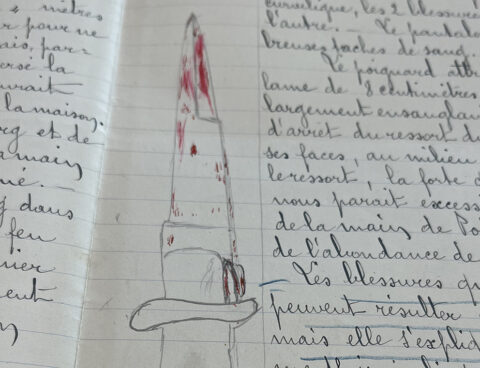 mètres
r pour ne
ais, par=
ersé la
urait
la maison.
rg et de
a main
né. _
dans
feu
nier
ent
curviligne, les 2 blessures
l'autre. _ Le pantalo
breuses taches de sang.
Le poignard attr
lame de 8 centimètres
largement ensanglan
d'arrêt du ressort d
ses faces, au milieu
le ressort, la forte
nous parait excess
de la main de Poi
de l'abondance de
_ Les blessures qu
peuvent résulter
mais elle s'expliq